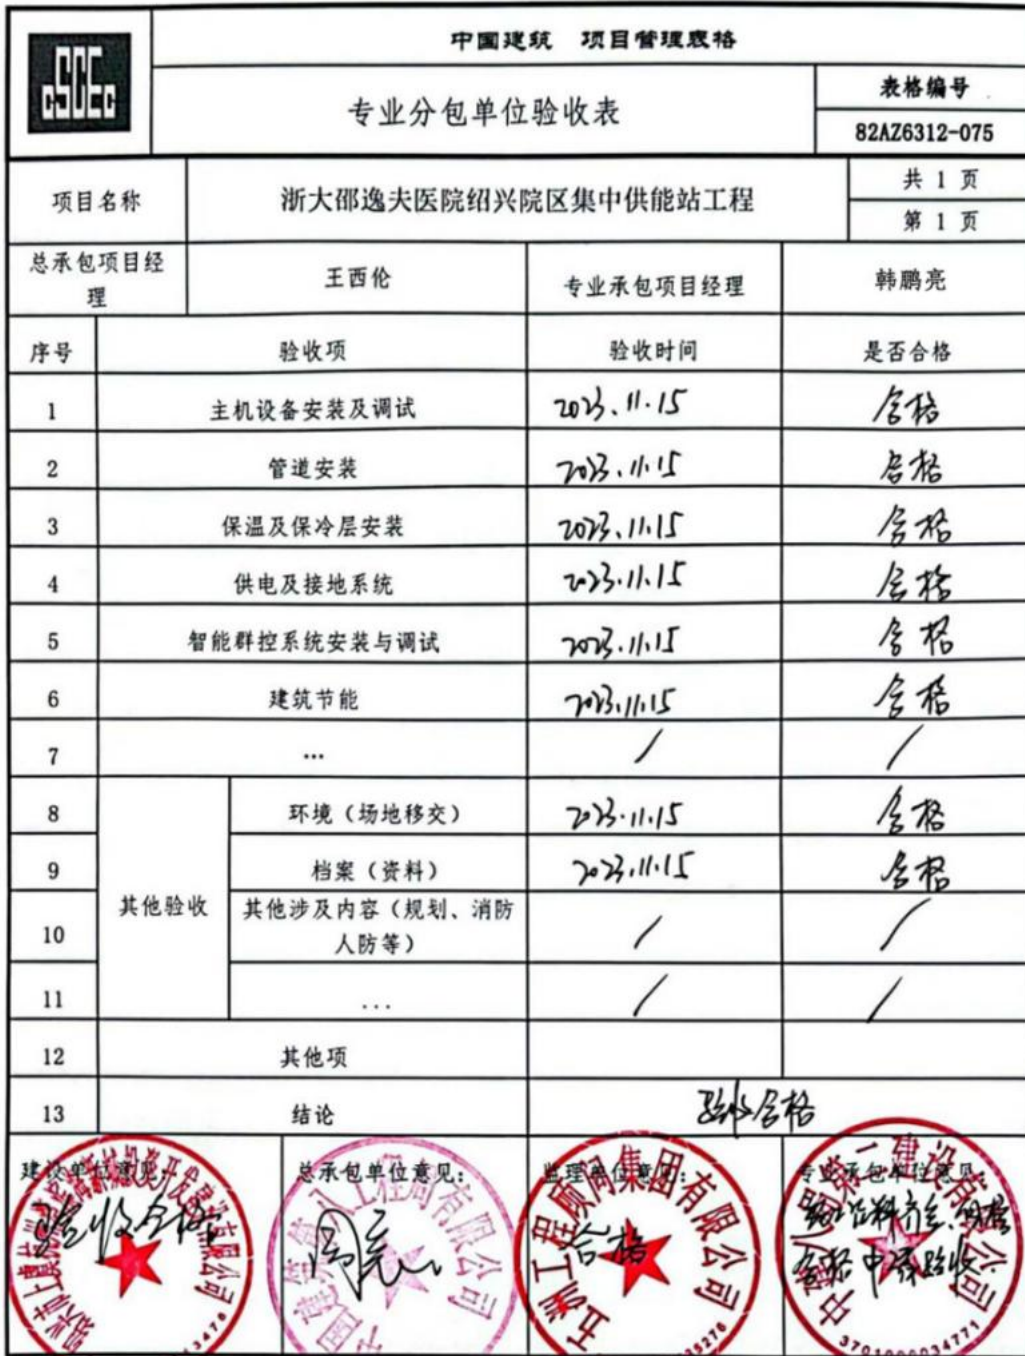 CSCEC
中国建筑 项目管理表格
专业分包单位验收表
表格编号
82AZ6312-075
项目名称
浙大邵逸夫医院绍兴院区集中供能站工程
共 1 页
第 1 页
总承包项目经
理
王西伦
专业承包项目经理
韩鹏亮
序号 验收项 验收时间 是否合格
1 主机设备安装及调试 2023.11.15 合格
2 管道安装 2023.11.15 合格
3 保温及保冷层安装 2023.11.15 合格
4 供电及接地系统 2023.11.15 合格
5 智能群控系统安装与调试 2023.11.15 合格
6 建筑节能 2023.11.15 合格
7 … / /
其他验收
8 环境（场地移交） 2023.11.15 合格
9 档案（资料） 2023.11.15 合格
10 其他涉及内容（规划、消防
人防等） / /
11 ... / /
12 其他项
13 结论 验收合格
建设单位意见：
验收合格
开发建设有限公司
总承包单位意见：
中国建筑第八工程局有限公司
监理单位意见：
合格
五洲工程顾问集团有限公司
专业承包单位意见：
资料齐全
合格 申请验收
中建八局第一建设有限公司
3701000034771